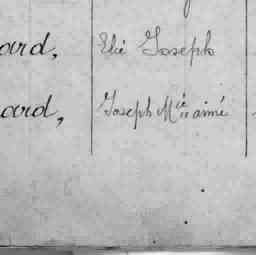 ard, Elie Joseph
ard, Joseph M ie aimé